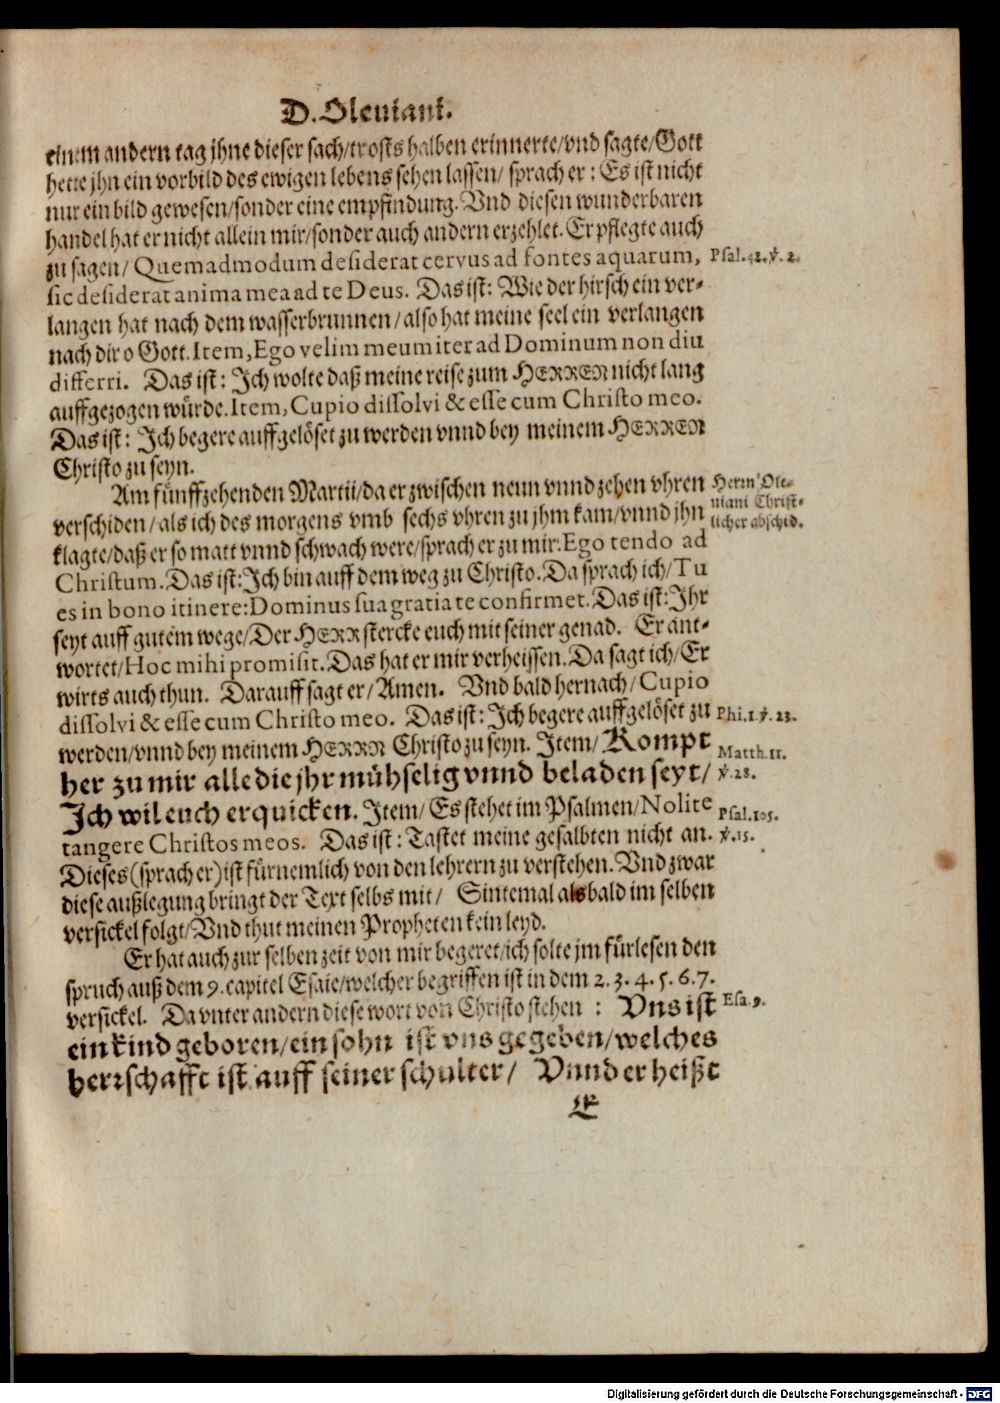 D. Oleviani.
einem andern tag ihne dieser sach/trosts halben erinnerte/vnd sagte/Gott
hette jhn ein vorbild des ewigen lebens sehen lassen/ sprach er: Es ist nicht
nur ein bild gewesen/sonder eine empfindung. Vnd diesen wunderbaren
handel hat er nicht allein mir/sonder auch andern erzehlet. Er pflegte auch
zu sagen/ Quemadmodum desiderat cervus ad fontes aquarum, Psal. 42. ℣. 2.
sic desiderat anima mea ad te Deus. Das ist: Wie der hirsch ein ver-
langen hat nach dem wasserbrunnen/also hat meine seel ein verlangen
nach dir o Gott. Item, Ego velim meum iter ad Dominum non diu
differri. Das ist: Ich wolte daß meine reise zum HERREN nicht lang
auffgezogen würde. Item, Cupio dissolvi & esse cum Christo meo.
Das ist: Ich begere auffgelöset zu werden vnnd bey meinem HERREN
Christo zu seyn.
Am fünffzehenden Martii/da er zwischen neun vnnd zehen vhren Herrn Ole-
verschiden/als ich des morgens vmb sechs vhren zu jhm kam/vnnd jhn viani Christ-
licher abschid.
klagte/daß er so matt vnnd schwach were/sprach er zu mir. Ego tendo ad
Christum. Das ist: Ich bin auff dem weg zu Christo. Da sprach ich/ Tu
es in bono itinere: Dominus sua gratia te confirmet. Das ist: Ihr
seyt auff gutem wege/Der HERR stercke euch mit seiner genad. Er ant-
wortet/Hoc mihi promisit. Das hat er mir verheissen. Da sagt ich/Er
wirts auch thun. Darauff sagt er/Amen. Vnd bald hernach/Cupio
dissolvi & esse cum Christo meo. Das ist: Ich begere auffgelöset zu Phi. 1. ℣. 23.
werden/vnnd bey meinem HERRN Christo zu seyn. Item/ Kompt Matth. 11.
her zu mir alle die jhr mühselig vnnd beladen seyt/ ℣. 28.
Ich wil euch erquicken. Item/ Es stehet im Psalmen/Nolite Psal. 105.
tangere Christos meos. Das ist: Tastet meine gesalbten nicht an. ℣. 15.
Dieses (sprach er) ist fürnemlich von den lehrern zu verstehen. Vnd zwar
diese außlegung bringt der Text selbs mit/ Sintemal alsbald im selben
versickel folgt/Vnd thut meinen Propheten kein leyd.
Er hat auch zur selben zeit von mir begeret/ich solte jm fürlesen den
spruch auß dem 9. capitel Esaie/welcher begriffen ist in dem 2. 3. 4. 5. 6. 7.
versickel. Da vnter andern diese wort von Christo stehen: Vns ist Esa. 9.
ein kind geboren/ein sohn ist vns gegeben/welches
herrschafft ist auff seiner schulter/ Vnnd er heißt
E
Digitalisierung gefördert durch die Deutsche Forschungsgemeinschaft - DFG